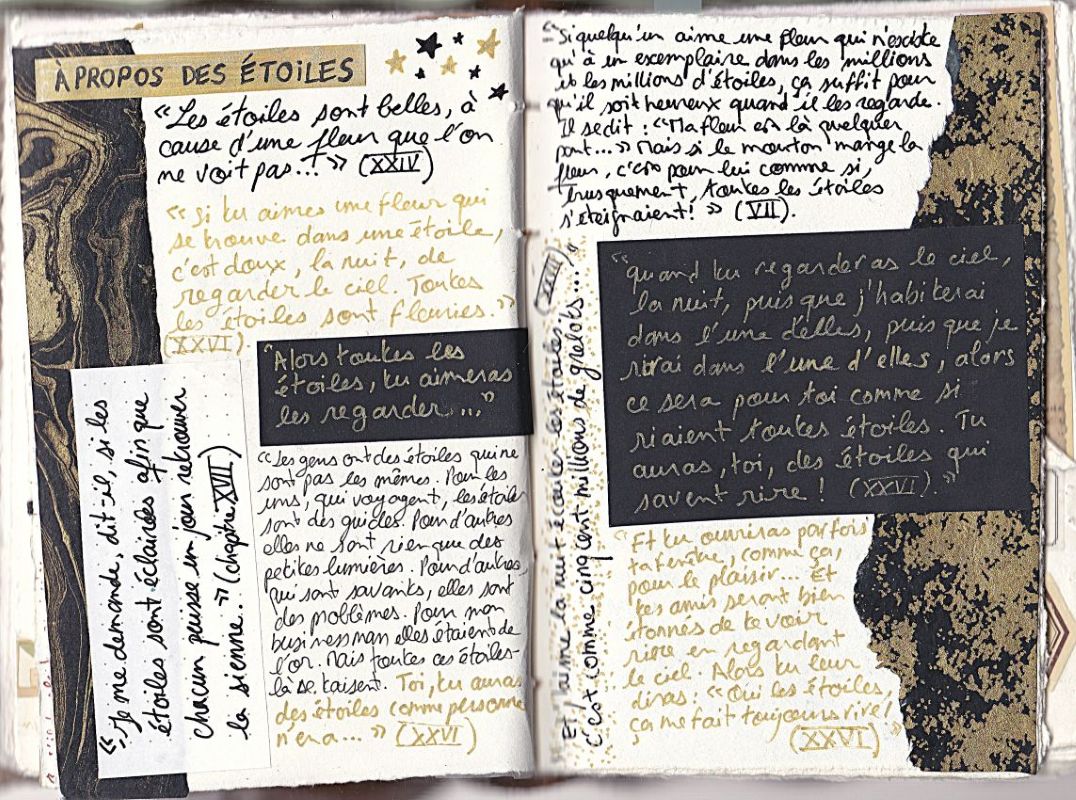 À PROPOS DES ÉTOILES
"Les étoiles sont belles, à
cause d'une fleur que l'on
ne voit pas..." (XXIV)
"Si tu aimes une fleur qui
se trouve dans une étoile,
c'est doux, la nuit, de
regarder le ciel. Toutes
les étoiles sont fleuries."
(XXVI).
"Alors toutes les
étoiles, tu aimeras
les regarder..."
"Je me demande, dit-il, si les
étoiles sont éclairées afin que
chacun puisse un jour retrouver
la sienne." (chapitre XVII)
"Les gens ont des étoiles qui ne
sont pas les mêmes. Pour les
uns, qui voyagent, les étoiles
sont des guides. Pour d'autres
elles ne sont rien que des
petites lumières. Pour d'autres,
qui sont savants, elles sont
des problèmes. Pour mon
businessman elles étaient de
l'or. Mais toutes ces étoiles-
là se taisent. Toi, tu auras
des étoiles comme personne
n'en a..." (XXVI)
"Si quelqu'un aime une fleur qui n'existe
qu'à un exemplaire dans les millions
et les millions d'étoiles, ça suffit pour
qu'il soit heureux quand il les regarde.
Il se dit : "Ma fleur est là quelque
part..." Mais si le mouton mange la
fleur, c'est pour lui comme si,
brusquement, toutes les étoiles
s'éteignaient!" (VII).
Et j'aime la nuit écouter les étoiles.
C'est comme cinq cent millions de grelots..." (XXVII)
"quand tu regarderas le ciel,
la nuit, puisque j'habiterai
dans l'une d'elles, puisque je
rirai dans l'une d'elles, alors
ce sera pour toi comme si
riaient toutes étoiles. Tu
auras, toi, des étoiles qui
savent rire! (XXVI)."
"Et tu ouvriras parfois
ta fenêtre, comme ça,
pour le plaisir... Et
tes amis seront bien
étonnés de te voir
rire en regardant
le ciel. Alors tu leur
diras : "Oui les étoiles,
ça me fait toujours rire!"
(XXVI)"